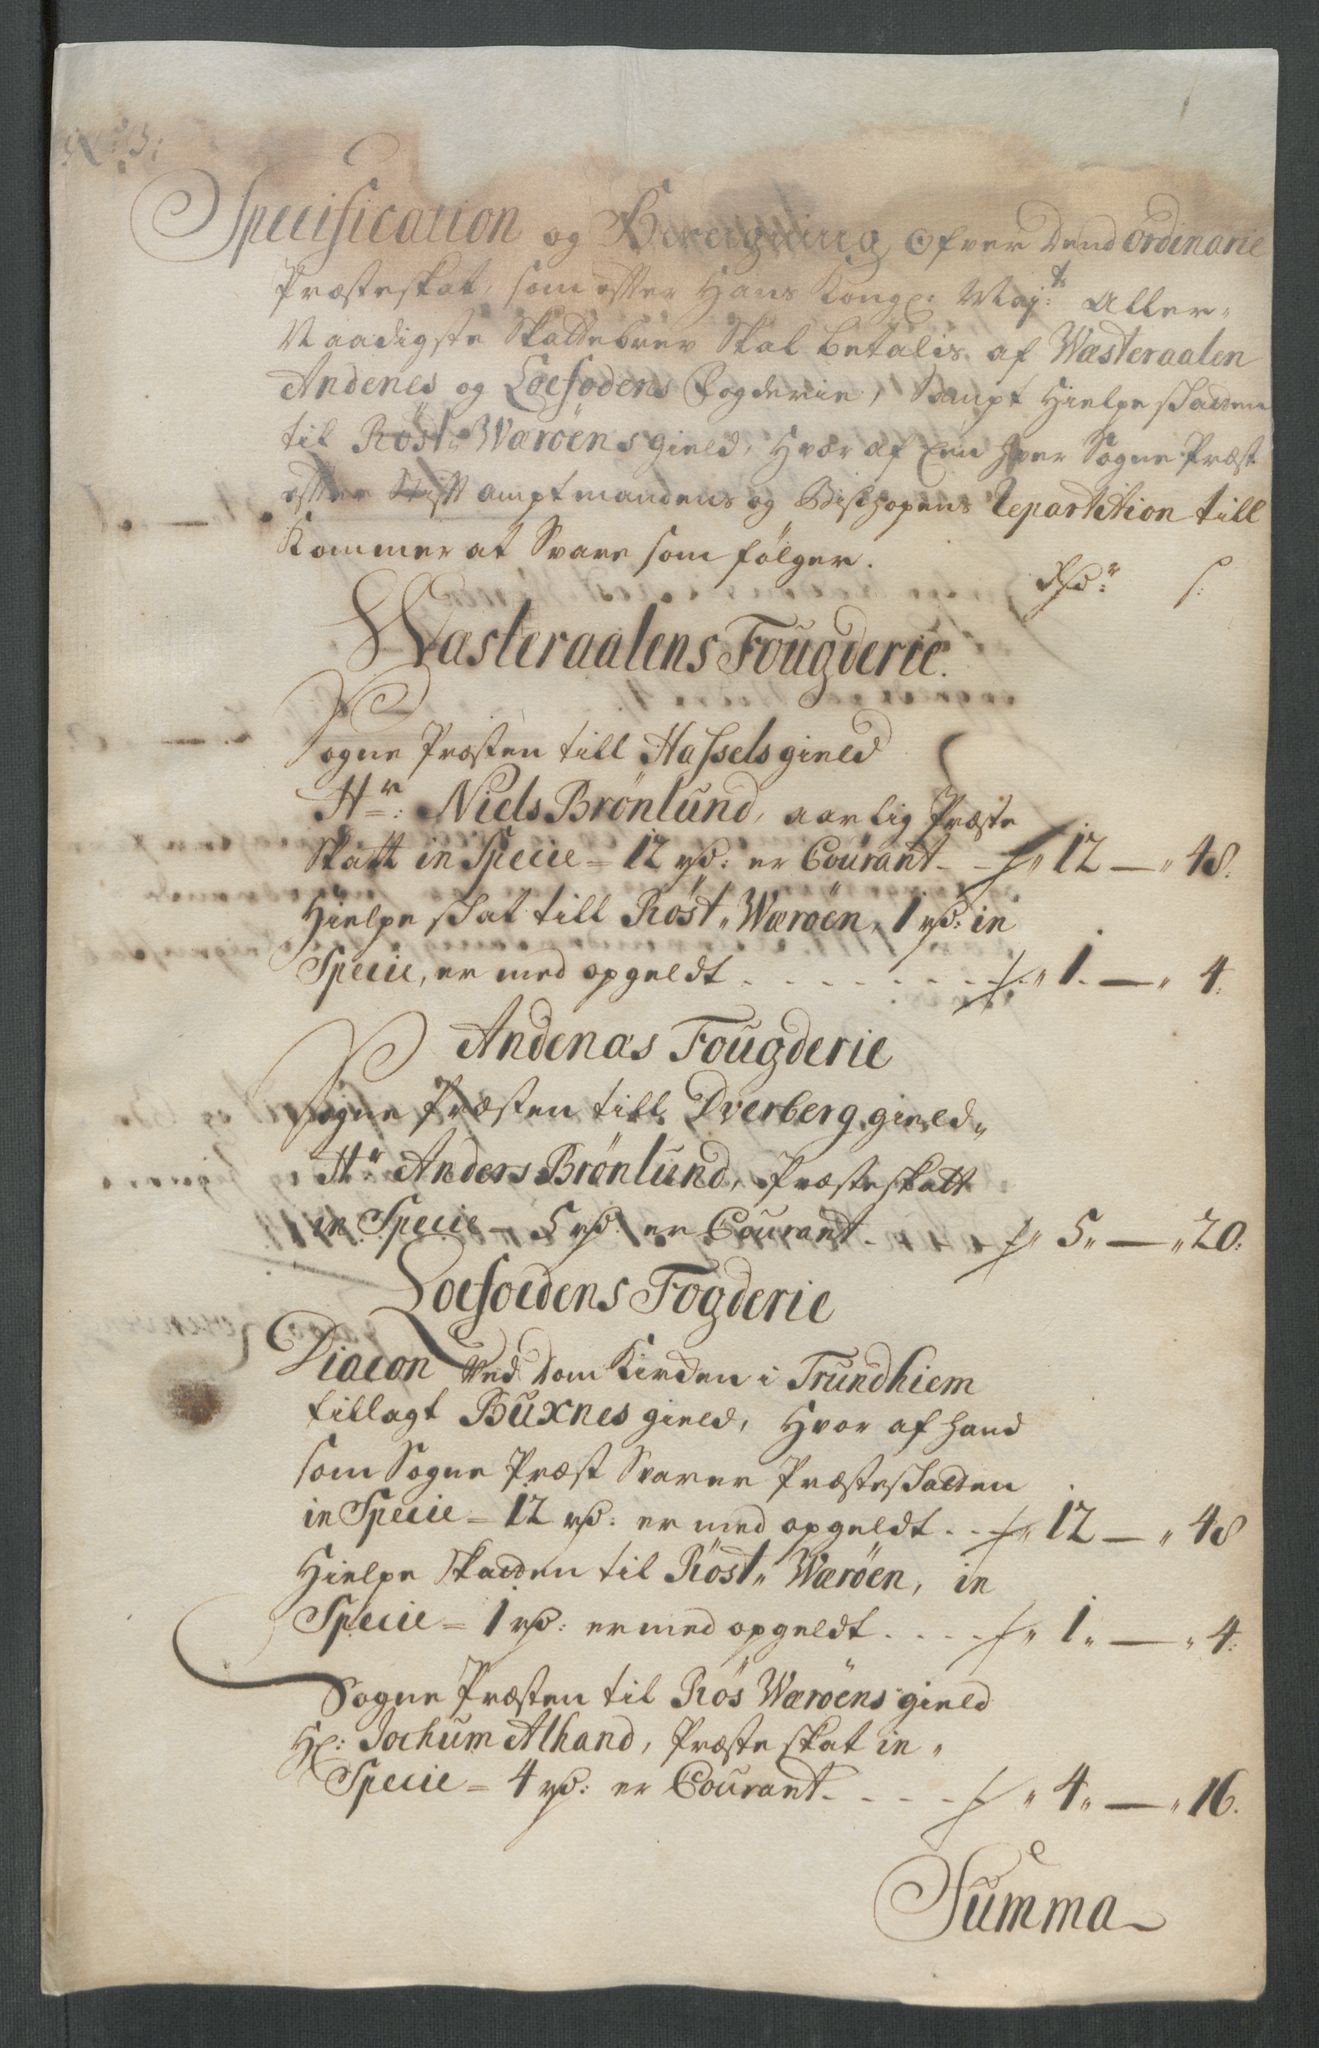 No 3:
Specification og Beregning Ofver dend Ordinarie
Præsteskat, som efter Hans Kongl: Maj:ts Aller-
Naadigste Skattebrev Skal betalis af Wæsteraalen
Andenes og Loefodens Fogderie, Sampt Hielpe skatten
til Röst Wæröens gield, Hvor af Een hver Sogne Præst
efter Stift amptmandens og Bischopens Repartition till
Kommer at Svare som følger. Rdr: s:
Wæsteraalens Fougderie.
Sogne Præsten till Hassels gield
Hr: Niels Brönlund, aarlig Præste
Skatt in Specie = 12 rd: er Courant - - 12 — 48.
Hielpe skat till Röst Wæröen, 1 rd: in
Specie, er med opgeldt - - - - - 1. — 4.
Andenæs Fougderie
Sogne Præsten till Dverberg gield
Hr Anders Brönlund, Præsteskatt
in Specie - 5 rd. er Courant - - 5 — 20.
Loefoedens Fogderie
Diacon Ved Dom Kircken i Trundhiem
tillagt Buxnes gield, Hvor af hand
som Sogne Præst Svarer Præsteskatten
in Specie = 12 rd: er med opgeldt - - 12 — 48
Hielpe Skatten til Röst Wæröen, in
Specie = 1 rd: er med opgeldt - - - - 1 — 4.
Sogne Præsten til Rös Wæröens gield
Hr: Jochum Alhand, Præste skat in
Specie = 4 rd: er Courant - - - - 4 — 16.
Summa